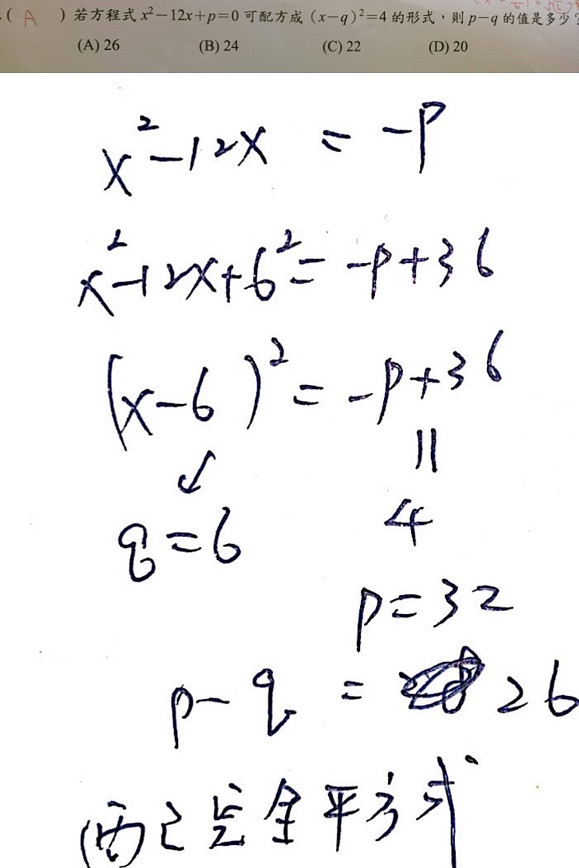 ( A ) 若方程式 x²−12x+p=0 可配方成 (x−q)²=4 的形式，則 p−q 的值是多少？
(A) 26 (B) 24 (C) 22 (D) 20
x²−12x = −p
x²−12x+6² = −p+36
(x−6)² = −p+36
↙ ||
q=6 4
p=32
p−q = 26
完全平方式